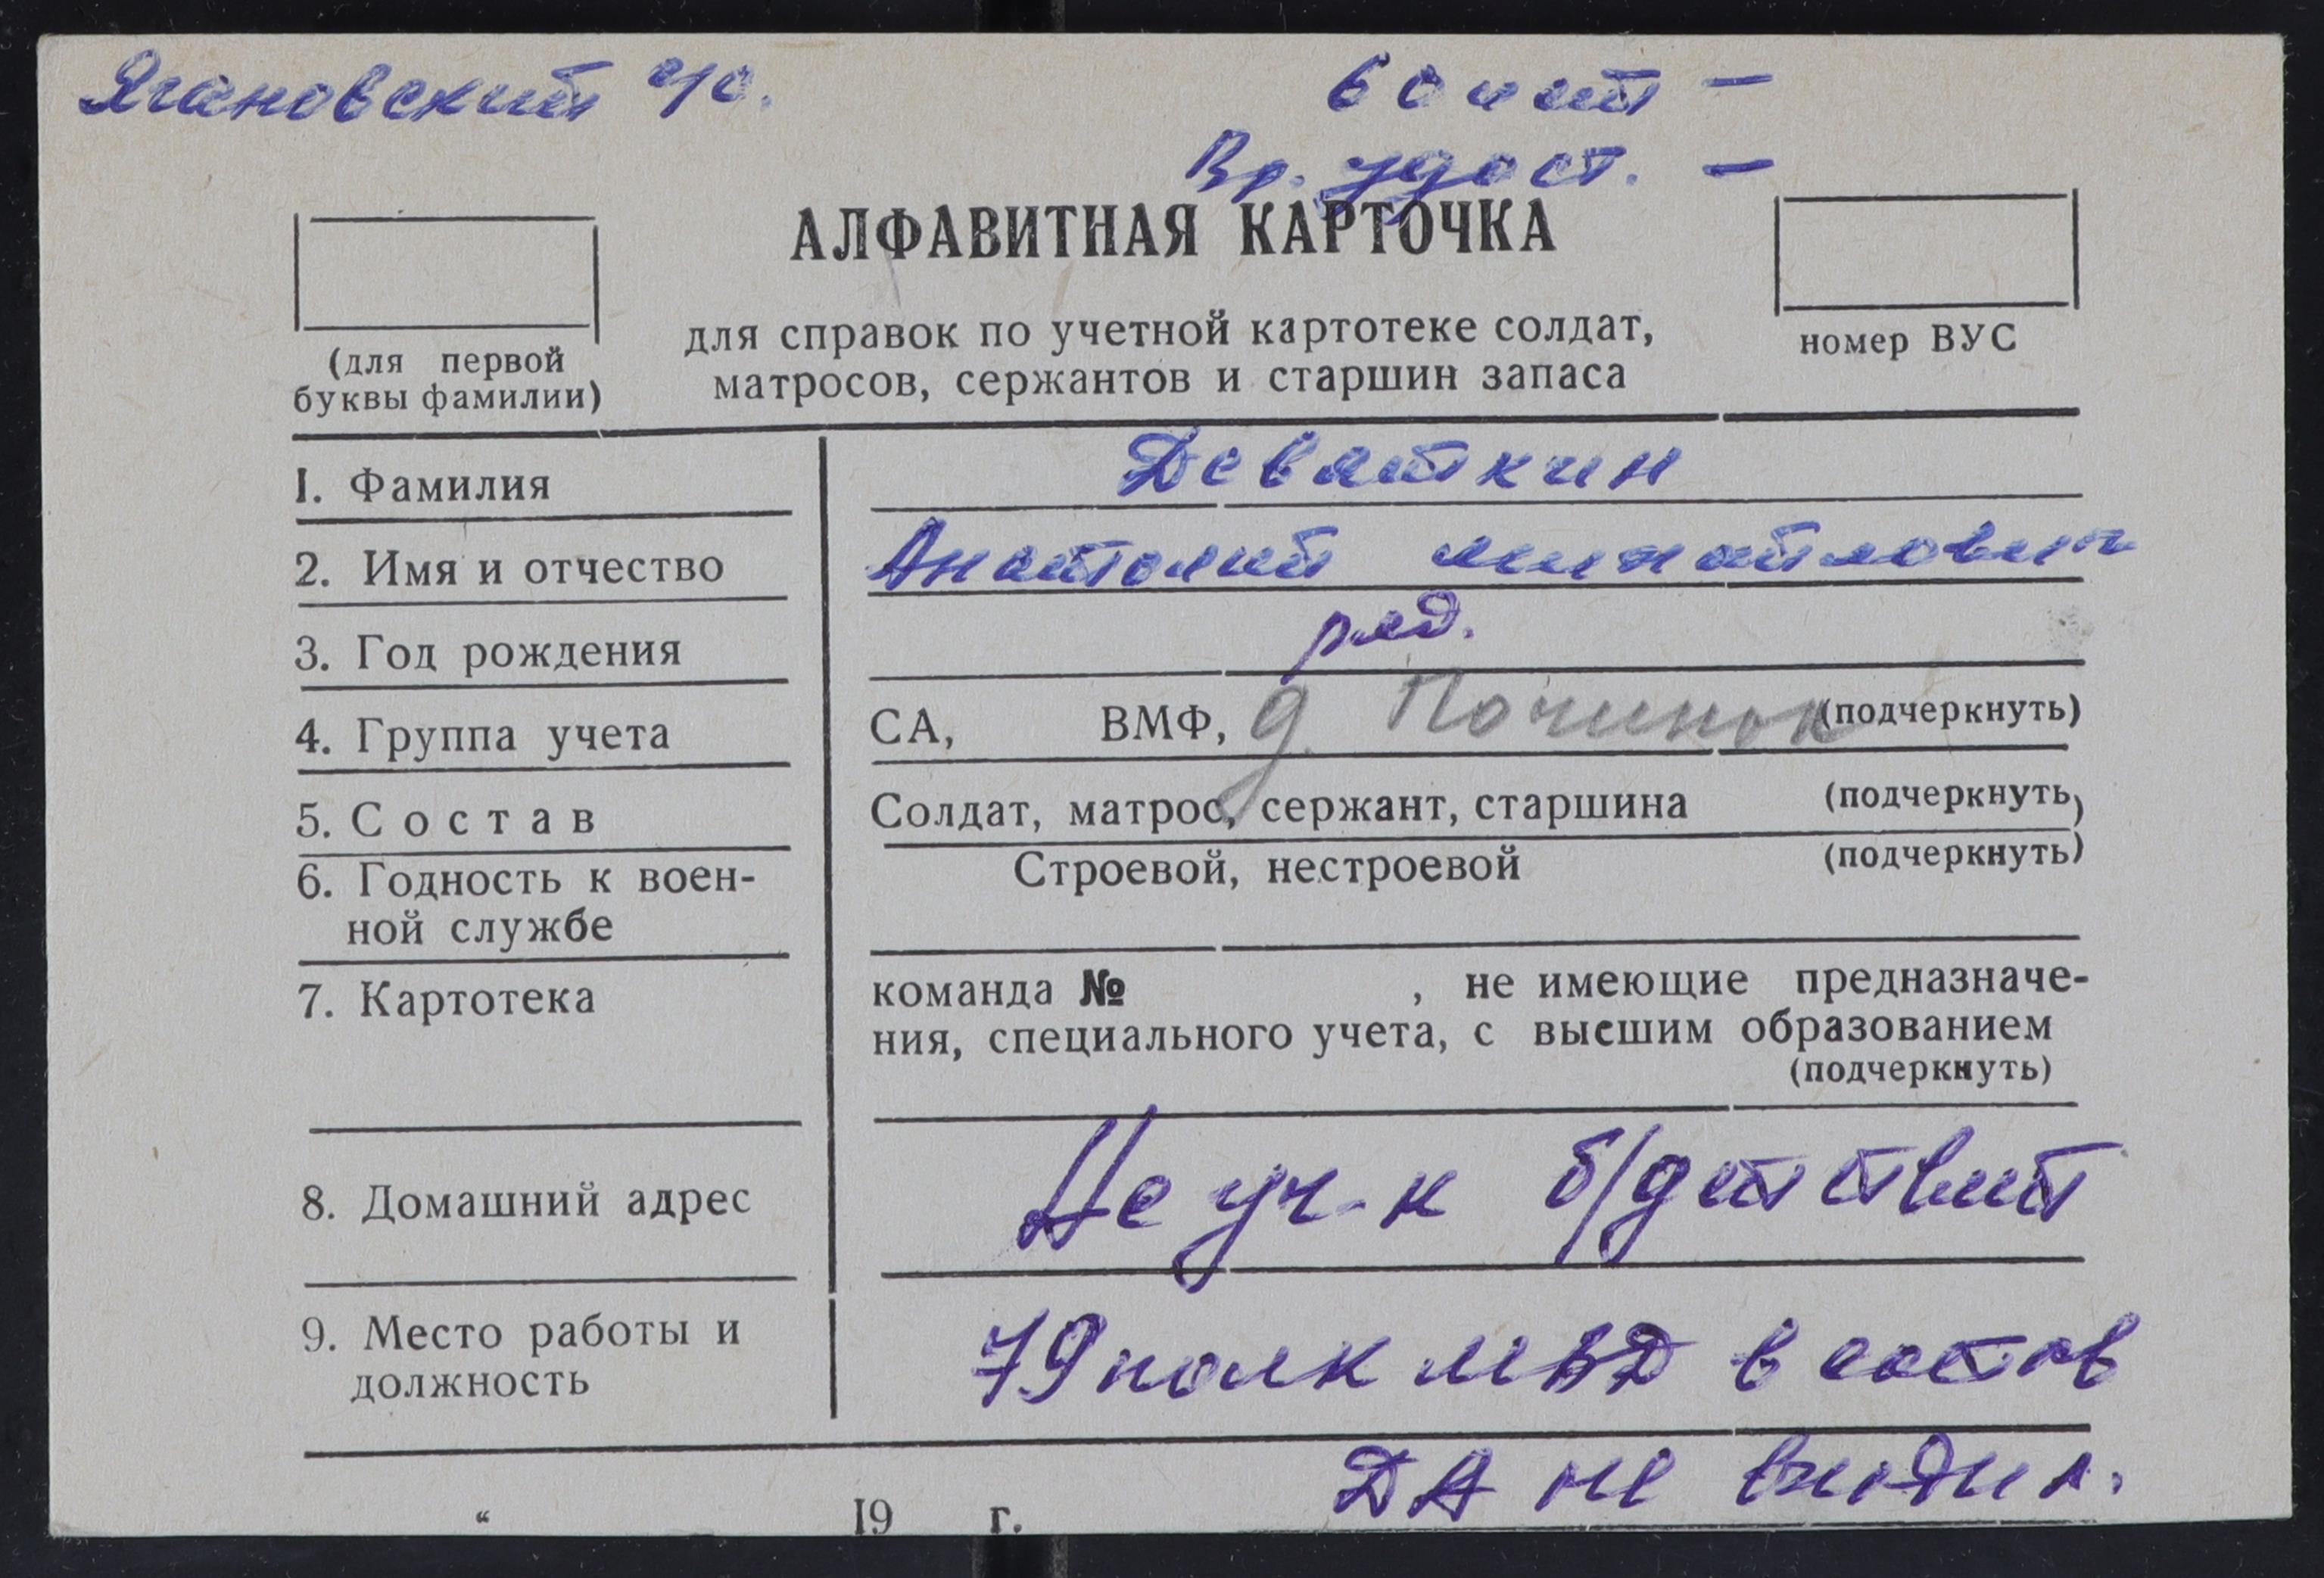 Ягановский с/с.
Вр. удост. –
АЛФАВИТНАЯ КАРТОЧКА
для справок по учетной картотеке солдат,
матросов, сержантов и старшин запаса
(для первой
буквы фамилии)
номер ВУС
1. Фамилия Девяткин
2. Имя и отчество Анатолий Михайлович
3. Год рождения ряд.
4. Группа учета СА, ВМФ, д. Починок (подчеркнуть)
5. Состав Солдат, матрос, сержант, старшина (подчеркнуть)
6. Годность к воен- Строевой, нестроевой (подчеркнуть)
ной службе
7. Картотека команда № , не имеющие предназначе-
ния, специального учета, с высшим образованием
(подчеркнуть)
8. Домашний адрес Не уч-к б/действий
9. Место работы и 79 полк МВД в состав
должность
ДА не входил.
„ 19 г.